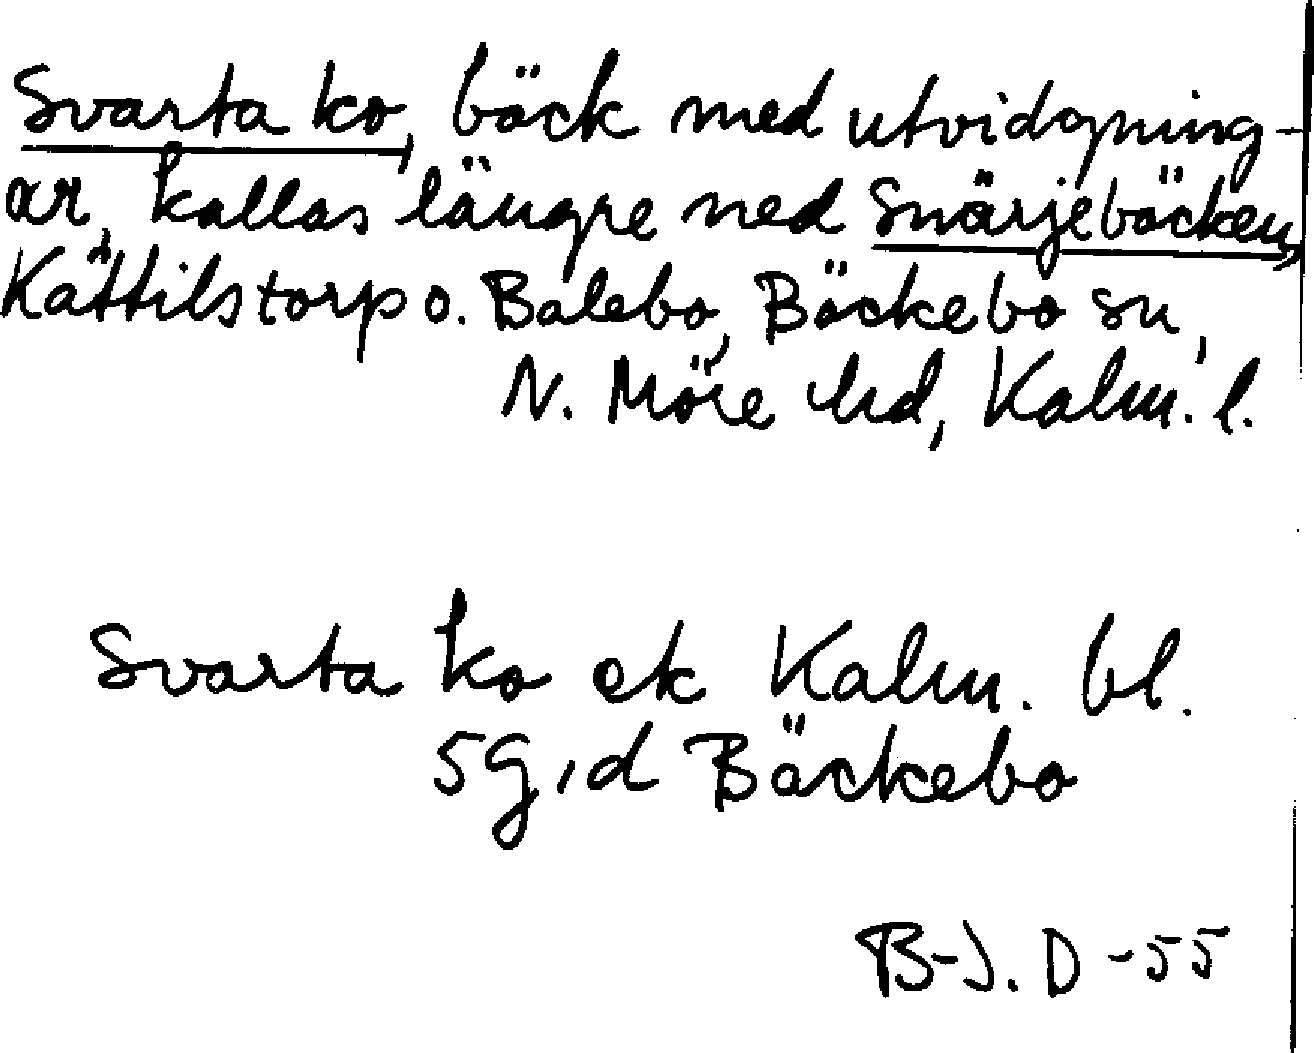 Svarta ko, bäck med utvidgning-
ar, kallas längre ned Snärjebäcken,
Kättilstorp o. Balebo, Bäckebo sn,
N. Möre hd, Kalm. l.
Svarta ko ek Kalm. bl.
5g, d Bäckebo
B-J. D -55